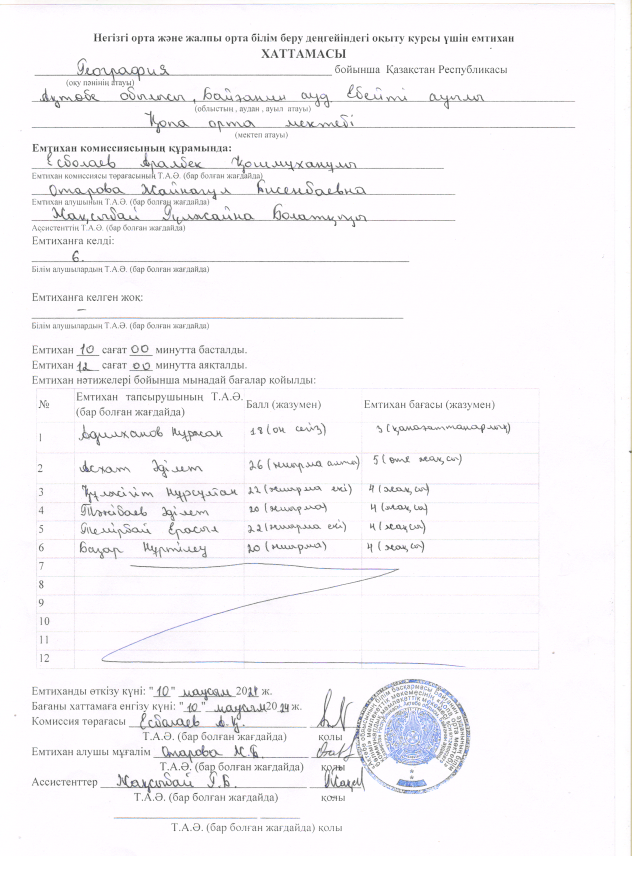 Негізгі орта және жалпы орта білім беру деңгейіндегі оқыту курсы үшін емтихан
ХАТТАМАСЫ
География бойынша Қазақстан Республикасы
(оқу пәнінің атауы)
Ақтөбе облысы, Байғанин ауд Ебейті ауылы
(облыстың , аудан , ауыл атауы)
Қопа орта мектебі
(мектеп атауы)
Емтихан комиссиясының құрамында:
Есболаев Аралбек Қошмуханұлы
Емтихан комиссиясы төрағасының Т.А.Ә. (бар болған жағдайда)
Отарова Жайнагул Бисенбаевна
Емтихан алушының Т.А.Ә. (бар болған жағдайда)
Мақсотбай Гүлжайна Болатқызы
Ассистенттің Т.А.Ә. (бар болған жағдайда)
Емтиханға келді:
6.
Білім алушылардың Т.А.Ә. (бар болған жағдайда)
Емтиханға келген жоқ:
–
Білім алушылардың Т.А.Ә. (бар болған жағдайда)
Емтихан 10 сағат 00 минутта басталды.
Емтихан 12 сағат 00 минутта аяқталды.
Емтихан нәтижелері бойынша мынадай бағалар қойылды:
№ Емтихан тапсырушының Т.А.Ә. (бар болған жағдайда) Балл (жазумен) Емтихан бағасы (жазумен)
1 Адилханов Нұржан 18 (он сегіз) 3 (қанағаттанарлық)
2 Асхат Әділет 26 (жиырма алты) 5 (өте жақсы)
3 Құлжігіт Нұрсұлтан 22 (жиырма екі) 4 (жақсы)
4 Тәжібаев Әділет 20 (жиырма) 4 (жақсы)
5 Темірбай Ерасыл 22 (жиырма екі) 4 (жақсы)
6 Базар Нұртілеу 20 (жиырма) 4 (жақсы)
7
8
9
10
11
12
Емтиханды өткізу күні: "10" маусым 2024 ж.
Бағаны хаттамаға енгізу күні: "10" маусым 2024 ж.
Комиссия төрағасы Есболаев А.Қ.
Т.А.Ә. (бар болған жағдайда) қолы
Емтихан алушы мұғалім Отарова Ж.Б.
Т.А.Ә. (бар болған жағдайда) қолы
Ассистенттер Мақсотбай Г.Б.
Т.А.Ә. (бар болған жағдайда) қолы
Т.А.Ә. (бар болған жағдайда) қолы